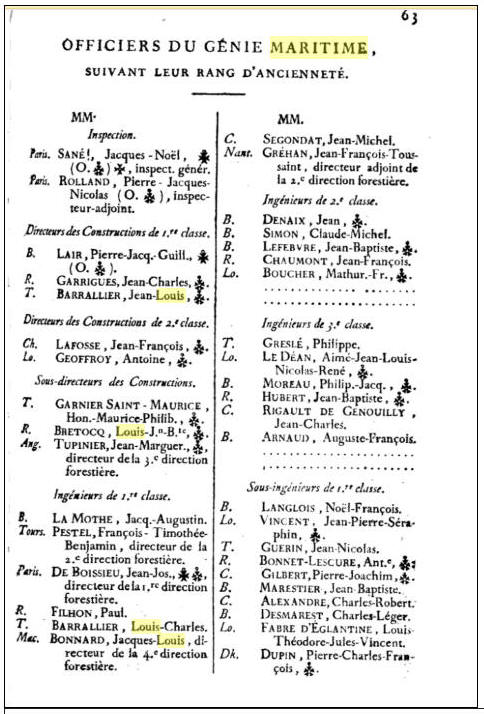 63
OFFICIERS DU GÉNIE MARITIME,
SUIVANT LEUR RANG D'ANCIENNETÉ.
MM.
Inspection.
Paris. SANÉ!, Jacques-Noël,
(O. ) , inspect. génér.
Paris. ROLLAND, Pierre-Jacques-
Nicolas (O. ), inspec-
teur-adjoint.
Directeurs des Constructions de 1.re classe.
B. LAIR, Pierre-Jacq.-Guill.,
(O. ).
R. GARRIGUES, Jean-Charles, .
T. BARRALLIER, Jean-Louis, .
Directeurs des Constructions de 2.e classe.
Ch. LAFOSSE, Jean-François, .
Lo. GEOFFROY, Antoine, .
Sous-directeurs des Constructions.
T. GARNIER SAINT-MAURICE,
Hon.-Maurice-Philib., .
R. BRETOCQ, Louis-J.n-B.te, .
Ang. TUPINIER, Jean-Marguer., ,
directeur de la 3.e direction
forestière.
Ingénieurs de 1.re classe.
B. LA MOTHE, Jacq.-Augustin.
Tours. PESTEL, François-Timothée-
Benjamin, directeur de la
2.e direction forestière.
Paris. DE BOISSIEU, Jean-Jos., ,
directeur de la 1.re direction
forestière.
R. FILHON, Paul.
T. BARRALLIER, Louis-Charles.
Mac. BONNARD, Jacques-Louis, di-
recteur de la 4.e direction
forestière.
MM.
C. SEGONDAT, Jean-Michel.
Nant. GRÉHAN, Jean-François-Tous-
saint, directeur adjoint de
la 2.e direction forestière.
Ingénieurs de 2.e classe.
B. DENAIX, Jean, .
B. SIMON, Claude-Michel.
B. LEFEBVRE, Jean-Baptiste, .
R. CHAUMONT, Jean-François.
Lo. BOUCHER, Mathur.-Fr., .
Ingénieurs de 3.e classe.
T. GRESLÉ, Philippe.
Lo. LE DÉAN, Aimé-Jean-Louis-
Nicolas-René, .
B. MOREAU, Philip.-Jacq., .
R. HUBERT, Jean-Baptiste, .
C. RIGAULT DE GENOUILLY,
Jean-Charles.
B. ARNAUD, Auguste-François.
Sous-ingénieurs de 1.re classe.
B. LANGLOIS, Noël-François.
Lo. VINCENT, Jean-Pierre-Séra-
phin, .
T. GUERIN, Jean-Nicolas.
R. BONNET-LESCURE, Ant.e, .
C. GILBERT, Pierre-Joachim, .
B. MARESTIER, Jean-Baptiste.
C. ALEXANDRE, Charles-Robert.
B. DESMAREST, Charles-Léger.
Lo. FABRE D'ÉGLANTINE, Louis-
Théodore-Jules-Vincent.
Dk. DUPIN, Pierre-Charles-Fran-
çois, .